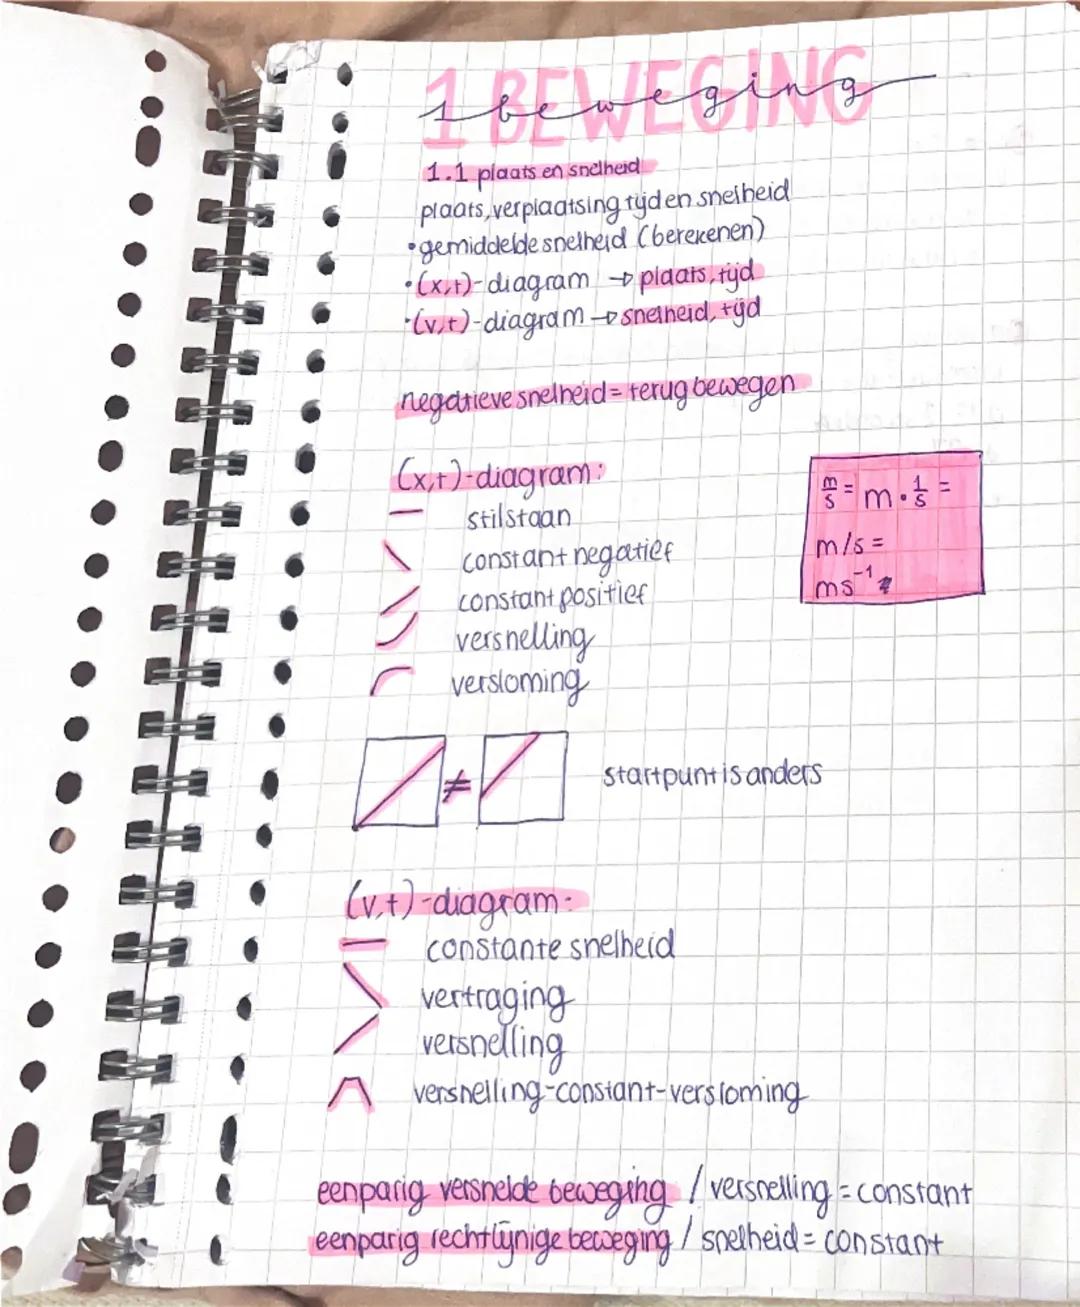 1 BEWEGING
1 beweging
1.1 plaats en snelheid
plaats, verplaatsing tijd en snelheid
• gemiddelde snelheid (berekenen)
• (x,t)-diagram → plaats, tijd
• (v,t)-diagram → snelheid, tijd
negatieve snelheid = terug bewegen
(x,t)-diagram:
— stilstaan
\ constant negatief
/ constant positief
versnelling
versloming
m/s = m · 1/s =
m/s =
ms⁻¹
≠ startpunt is anders
(v,t)-diagram:
— constante snelheid
\ vertraging
/ versnelling
versnelling-constant-versloming
eenparig versnelde beweging / versnelling = constant
eenparig rechtlijnige beweging / snelheid = constant